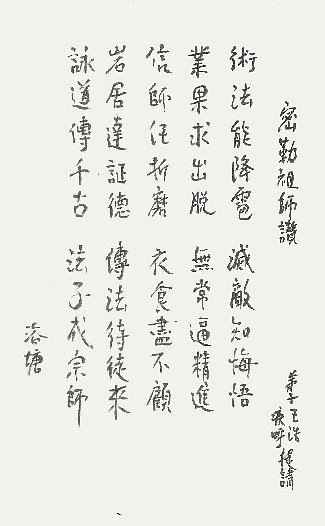 密勒祖師讚
弟子王浩
提請
術法能降雹 滅敵知悔悟
業果求出脫 無常逼精進
信師任折磨 衣食盡不顧
岩居達証德 傳法待徒來
詠道傳千古 法子成宗師